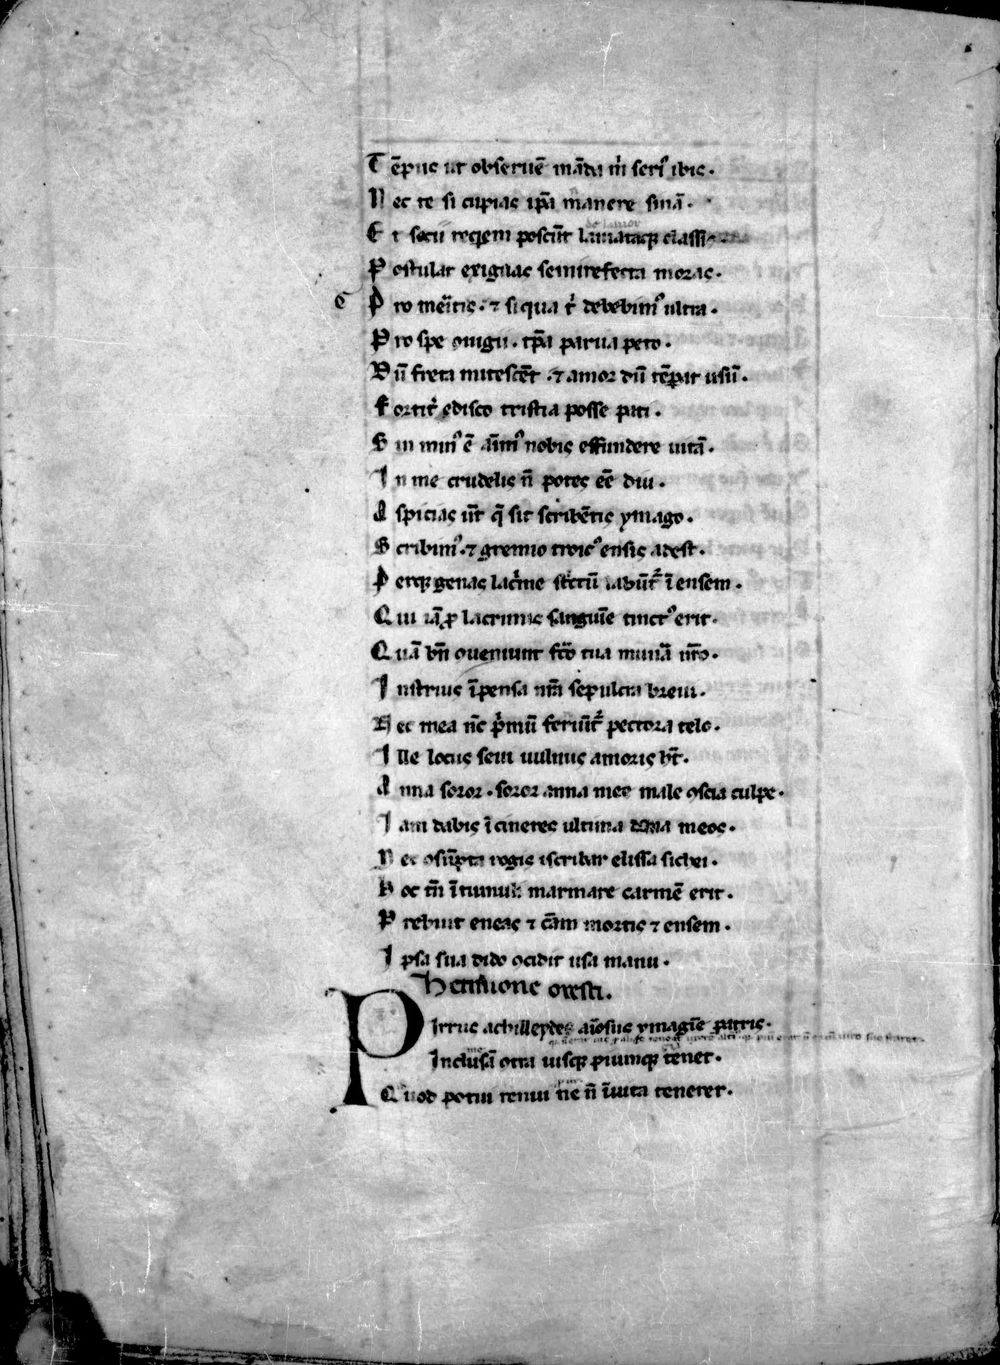 T ēpus ut obseruē māda m̄ seri᷒ ibis.
N ec te si cupias ip̄a manere sinā.
E t socii reqiem poscūt laniataq; classis
P ostulat exiguas semirefecta moras.
P ro meītis. ⁊ siqua t̄ debebim᷒ ultra.
P ro spe ɔiugii. tp̄a parua peto.
D ū freta mitescūt. ⁊ amor dū tēpat usū.
F ortit̄ edisco tristia posse pati.
S in min᷒ ē aīm᷒ nobis effundere uitā.
I n me crudelis n̄ potes eē diu.
A spicias ut̄ q̄ sit scribētis ymago.
S cribim᷒. ⁊ gremio troic᷒ ensis adest.
P erq; genas lac̄me strictū labūt̄ ī ensem.
Q ui iā ꝓ lacrimis sanguīe tinct᷒ erit.
Q uā bn̄ ɔueniunt fc̄o tua munā nr̄o.
I nstruis īpensa nr̄a sepulcra breui.
N ec mea nc̄ p̄mū feriūt̄ pectora telo.
I lle locus seui uulnus amoris ht̄.
A nna soror. soror anna mee male ɔscia culpe.
I am dabis ī cineres ultima dona meos.
N ec ɔsūpta rogis iscribar elissa sichei.
H oc tn̄ ī tumuli marmare carmē erit.
P rebuit eneas ⁊ cām mortis ⁊ ensem.
I psa sua dido ɔcidit usa manu.
Hermione oresti.
P Irrus achilleydes aīosus ymagīe patris.
Inclusā ɔtra iusq; piumq; tenet.
Q uod potui renui nc̄ n̄ īuita tenerer.